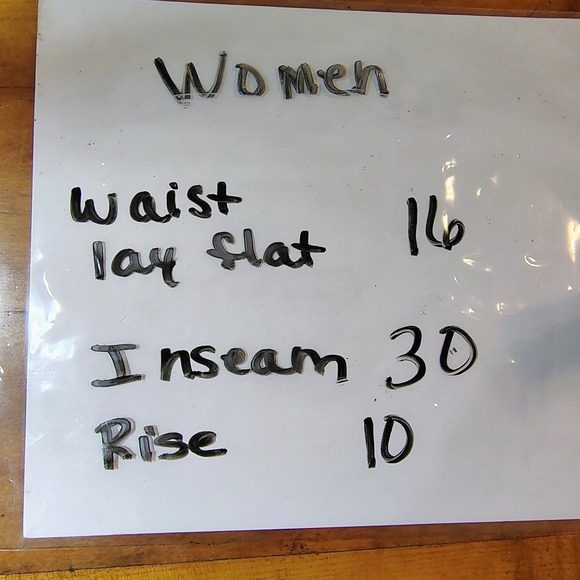 Women
Waist
lay flat 16
Inseam 30
Rise 10